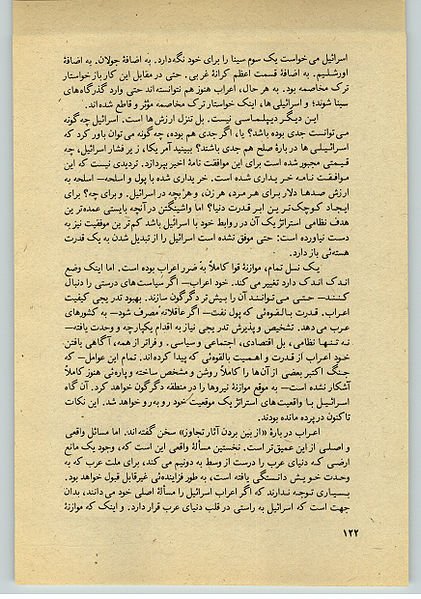 اسرائیل می‌خواست یک سوم سینا را برای خود نگه‌دارد. به اضافهٔ جولان. به اضافهٔ
اورشلیم. به اضافهٔ قسمت اعظم کرانهٔ غربی. حتی در مقابل این کار باز خواستار
ترک مخاصمه بود. به هر حال، اعراب هنوز هم نتوانسته‌اند حتی وارد گذرگاه‌های
سینا شوند؛ و اسرائیلی‌ها، اینک خواستار ترک مخاصمه مؤثر و قاطع شده‌اند.
ایـن دیگـر دیپلمـاسی نیست. بل تنزل ارزش‌ها است. اسرائیل چه‌گونه
می‌توانست جدی بوده باشد؟ یا، اگر جدی هم بوده، چه‌گونه می‌توان باور کرد که
اسرائیلی‌ها دربارهٔ صلح هم جدی باشند؟ ببینید آمریکا، زیر فشار اسرائیل، چه
قیمتی مجبور شده است برای این موافقت نامهٔ اخیر بپردازد. تردیدی نیست که این
موافقت نامه خریداری شده است. خریداری شده با پول و اسلحه— اسلحه به
ارزش صدها دلار برای هر مرد، هر زن، و هر بچه در اسرائیل. و برای چه؟ برای
ایجاد کوچک‌ترین ابر قدرت دنیا؟ اما واشینگتن در آنچه بایستی عمده‌ترین
هدف نظامی استراتژیک آن در روابط خود با اسرائیل باشد کم‌ترین موفقیت نیز به
دست نیاورده است: حتی موفق نشده است اسرائیل را از تبدیل شدن به یک قدرت
هسته‌ئی باز دارد.
یـک نسل تمام، موازنهٔ قوا کاملاً به ضرر اعراب بوده است. اما اینک وضع
اندک اندک دارد تغییر می‌کند. خود اعراب— اگر سیاست‌های درستی را دنبال
کنند— حتـی می‌تواننـد آن را بیش‌تر دگرگون سازند. بهبود تدریجی کیفیت
اعراب. قدرت بالقوه‌ئی که پول نفت— اگر عاقلانه مصرف شود— به کشورهای
عرب می‌دهد. تشخیص و پذیرش تدریجی نیاز به اقدام یکپارچه و وحدت یافته—
نه تنها نظامی، بل اقتصادی، اجتماعی و سیاسی. و فراتر از همه، آگاهی یافتن
خود اعراب از قدرت و اهمیت بالقوه‌ئی که پیدا کرده‌اند. تمام این عوامل— که
جنگ اکتبر بعضی از آن‌ها را کاملاً روشن و مشخص ساخته و پاره‌ئی هنوز کاملاً
آشکار نشده است— به موقع موازنهٔ نیروها را در منطقه دگرگون خواهد کرد. آن گاه
اسرائیل با واقعیت‌های استراتژیک موقعیت خود رو به‌رو خواهد شد. این نکات
تاکنون در پرده مانده بودند.
اعراب دربارهٔ «از بین بردن آثار تجاوز» سخن گفته‌اند. اما مسائل واقعی
و اصلی از این عمیق‌تر است. نخستین مسألهٔ واقعی این است که، وجود یک مانع
ارضی که دنیای عرب را درست از وسط به دونیم می‌کند، برای ملت عرب که به
وحدت خویش دلبستگی یافته است، به طور فزاینده‌ئی غیرقابل قبول خواهد بود.
بسیاری توجه ندارند که اگر اعراب اسرائیل را مسألهٔ اصلی خود می‌دانند، بدان
جهت است که اسرائیل به راستی در قلب دنیای عرب قرار دارد. و اینک که موازنهٔ
۱۲۲